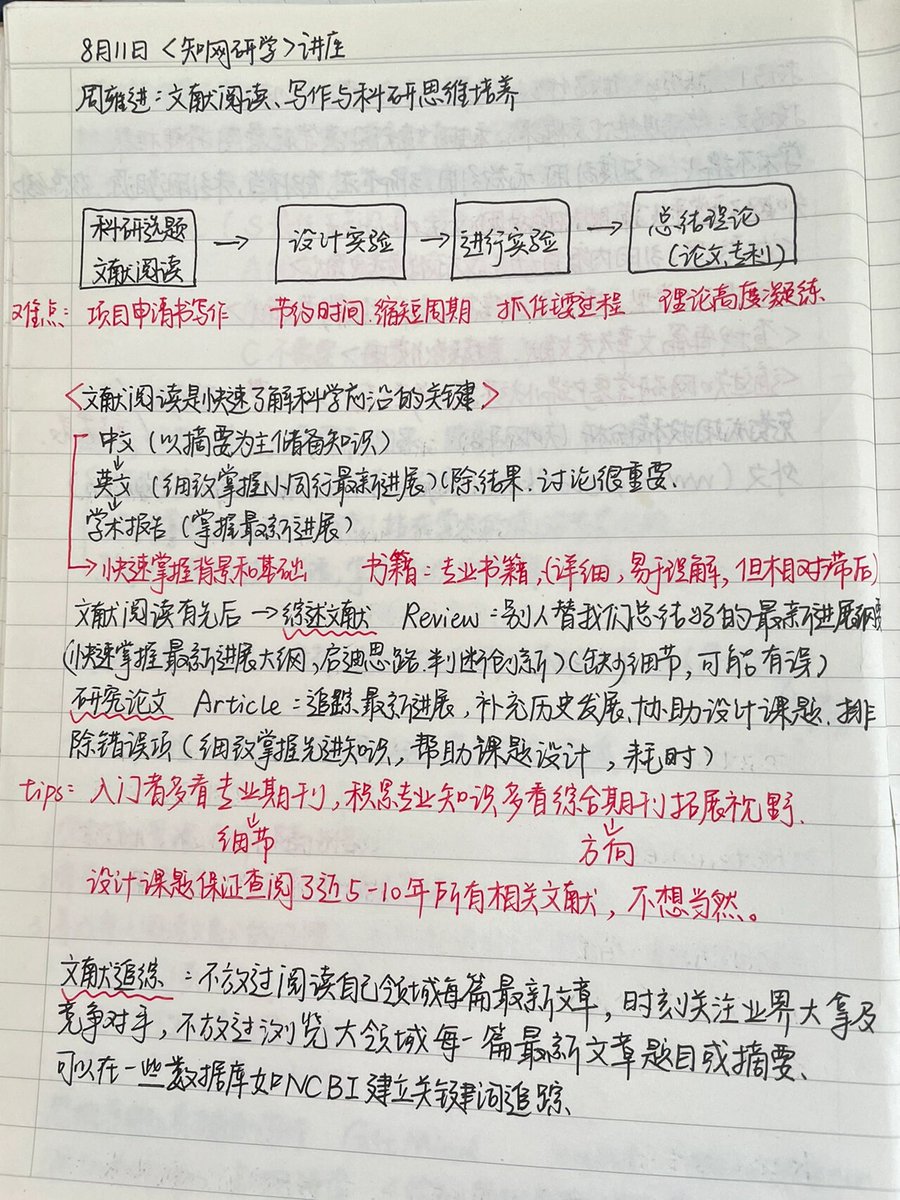 8月11日〈知网研学〉讲座
周雍进：文献阅读、写作与科研思维培养
科研选题 文献阅读 → 设计实验 → 进行实验 → 总结理论（论文、专利）
难点： 项目申请书写作 节约时间.缩短周期 抓住要过程 理论高度凝练
〈文献阅读是快速了解科学前沿的关键〉
中文（以摘要为主储备知识）
↓
英文（细致掌握小同行最新进展）（除结果.讨论很重要.
↓
学术报告（掌握最新进展）
→快速掌握背景和基础 书籍：专业书籍,（详细，易于误解，但相对滞后）
文献阅读有先后→综述文献 Review：别人替我们总结好的最新进展纲要
（快速掌握最新进展大纲,启迪思路.判断创新）（缺少细节,可能有误）
研究论文 Article：追踪最新进展,补充历史发展、协助设计课题.排
除错误项（细致掌握先进知识,帮助课题设计,耗时）
tips：入门者多看专业期刊,积累专业知识多看综合期刊拓展视野.
↓ ↓
细节 方向
设计课题保证查阅了近5-10年所有相关文献,不想当然。
文献追综：不放过阅读自己领域每篇最新文章，时刻关注业界大拿及
竞争对手，不放过浏览大领域每一篇最新文章题目或摘要、
可以在一些数据库如NCBI建立关键词追踪、